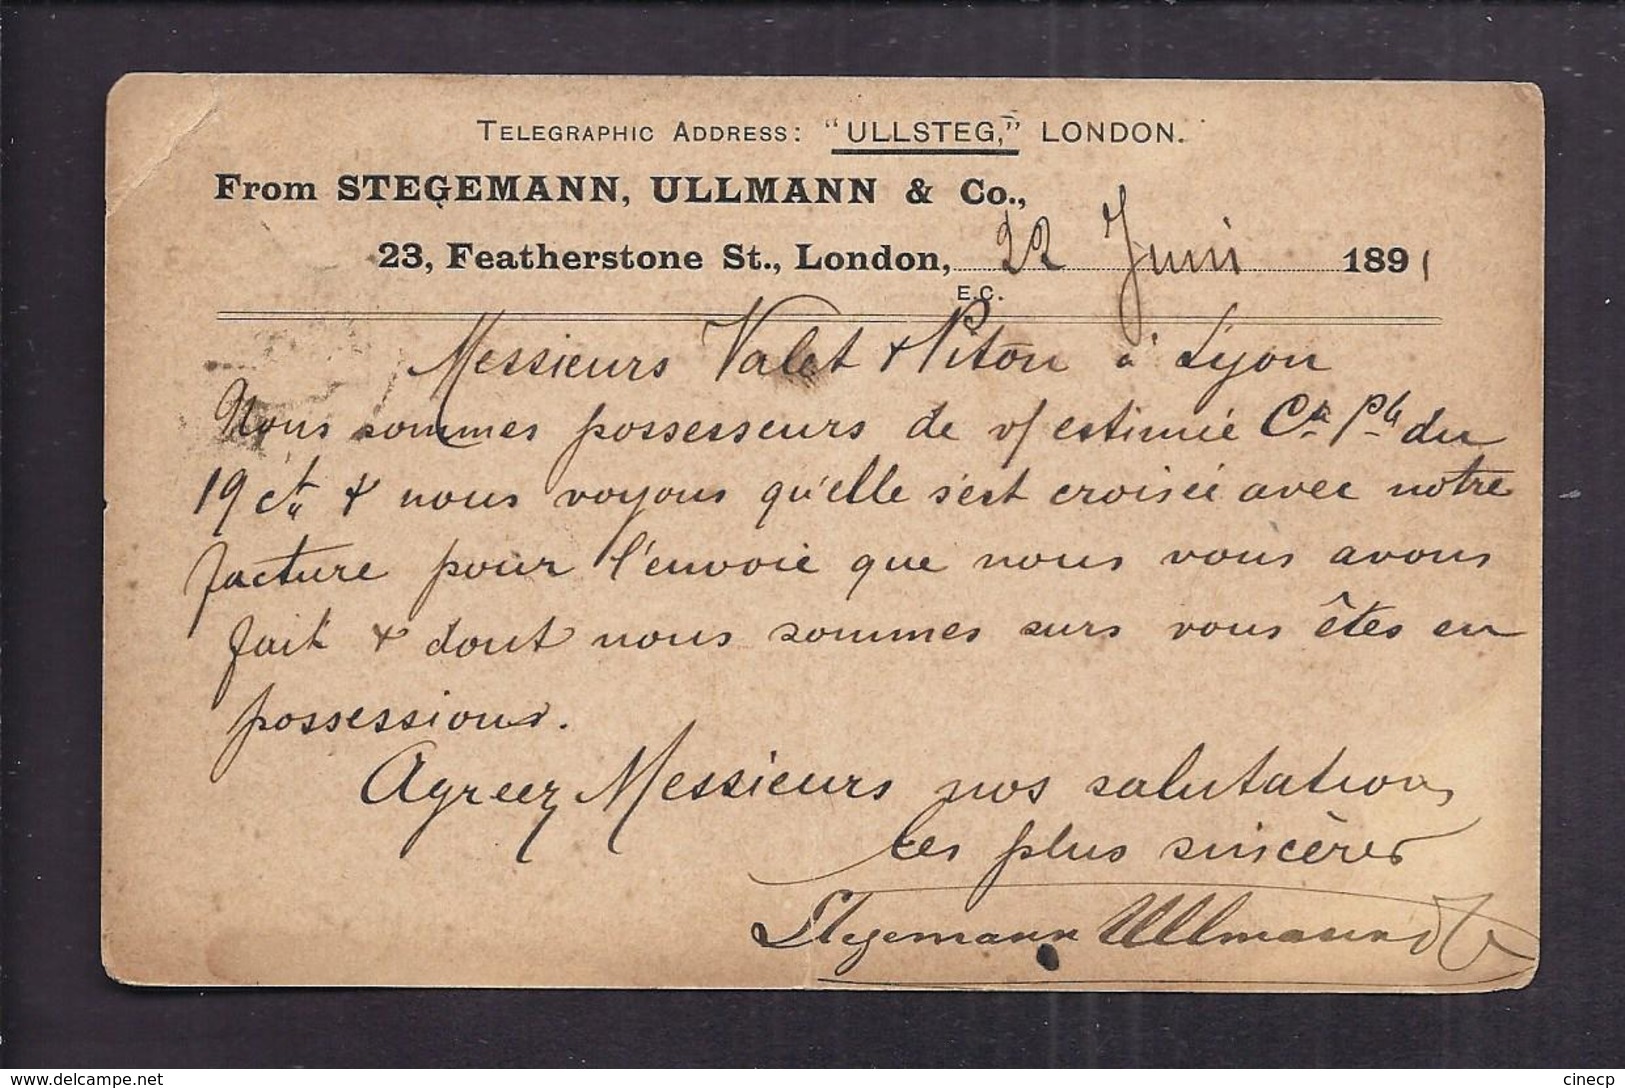 TELEGRAPHIC ADDRESS: "ULLSTEG," LONDON.
From STEGEMANN, ULLMANN & Co.,
23, Featherstone St., London, 22 Juni 1891
E.C.
Messieurs Valet & Piton à Lyon
Nous sommes possesseurs de v/ estimée Cte Ple du
19 ct & nous voyons qu'elle s'est croisée avec notre
facture pour l'envoie que nous vous avons
fait & dont nous sommes surs vous êtes en
possessions.
Agreez Messieurs nos salutations
les plus sincères
Stegemann Ullmann & Co
www.delcampe.net
cinecp